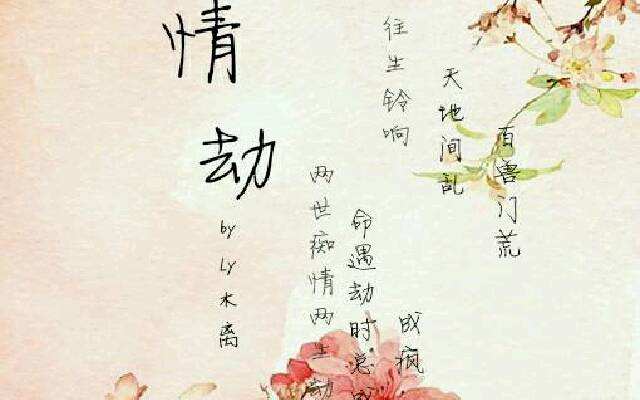 情劫
by Ly木离
百兽门荒
天地间乱
往生铃响
成疯
命遇劫时总成
两世痴情两生劫